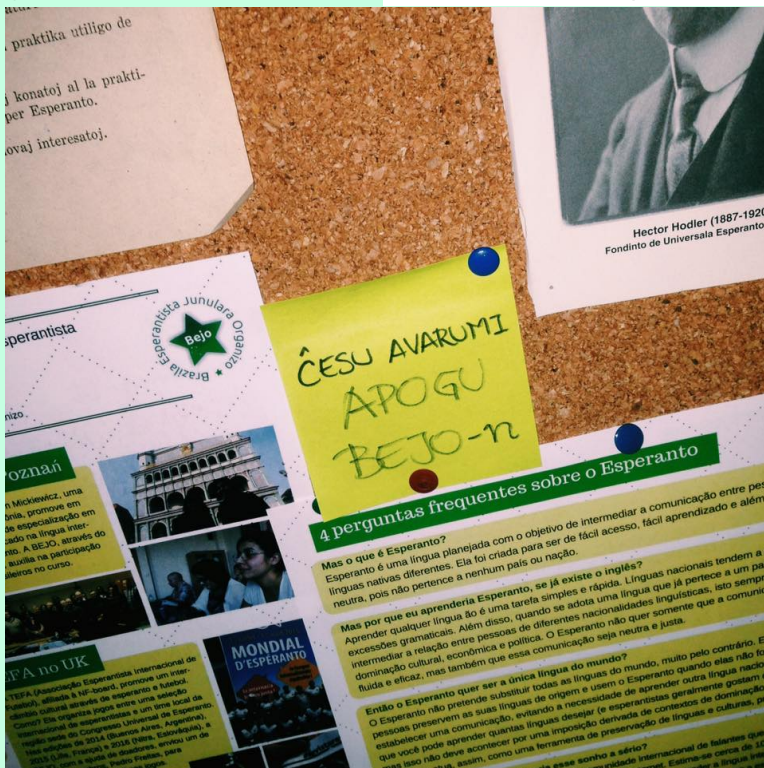 praktika utiligo de
konatoj al la prakti-
per Esperanto.
ovaj interesatoj.
Hector Hodler (1887-1920
Fondinto de Universala Esperanto
sperantista
Brazila Esperantista Junulara Organizo
Bejo
nizo
ĈESU AVARUMI
APOGU
BEJO-n
oznań
Mickiewicz, uma
ônia, promove em
de especialização em
cado na língua inter-
nto. A BEJO, através do
auxilia na participação
sileiros no curso.
MONDIAL
D'ESPERANTO
EFA no UK
TEFA (Associação Esperantista Internacional de
promove um inter-
cultural através de esperanto e futebol
organiza jogos entre uma seleção
de esperantistas e um time local da
do Congresso Universal de Esperanto.
edições de 2014 (Buenos Aires, Argentina),
2015 (Lille, França) e 2016 (Nitra, Eslováquia), a
com a ajuda de doadores, enviou um de
Pedro Freitas, para
4 perguntas frequentes sobre o Esperanto
Mas o que é Esperanto?
Esperanto é uma língua planejada com o objetivo de intermediar a comunicação entre pes
línguas nativas diferentes. Ela foi criada para ser de fácil acesso, fácil aprendizado e além
neutra, pois não pertence a nenhum país ou nação.
Mas por que eu aprenderia Esperanto, se já existe o inglês?
Aprender qualquer língua ão é uma tarefa simples e rápida. Línguas nacionais tendem a
excessões gramaticais. Além disso, quando se adota uma língua que já pertence a um pa
intermediar a relação entre pessoas de diferentes nacionalidades linguísticas, isto sempr
dominação cultural, econômica e política. O Esperanto não quer somente que a comuni
fluida e eficaz, mas também que essa comunicação seja neutra e justa.
Então o Esperanto quer ser a única língua do mundo?
O Esperanto não pretende substituir todas as línguas do mundo, muito pelo contrário. E
pessoas preservem as suas línguas de origem e usem o Esperanto quando elas não fo
estabelecer uma comunicação, evitando a necessidade de aprender outra língua nacio
que você pode aprender quantas línguas desejar (e esperantistas geralmente gostam
mas isso não deve acontecer por uma imposição derivada de contextos de dominaçã
assim, como uma ferramenta de preservação de línguas e culturas, p
esse sonho a sério?
comunidade internacional de falantes qu
Estima-se cerca de 10